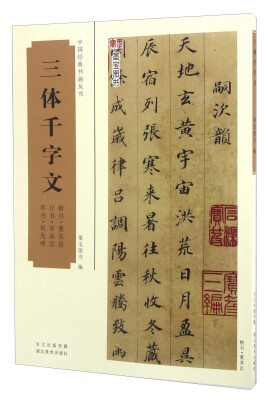 中国经典书画丛书
三体千字文
楷书·董其昌
墨宝图书 编
长江出版传媒
湖北美术出版社
墨宝图书
嗣次韻
天地玄黃宇宙洪荒日月盈昃
辰宿列張寒來暑往秋收冬藏
餘成歲律呂調陽雲騰致雨
石渠寶笈
寶笈三編
楷书·董其昌